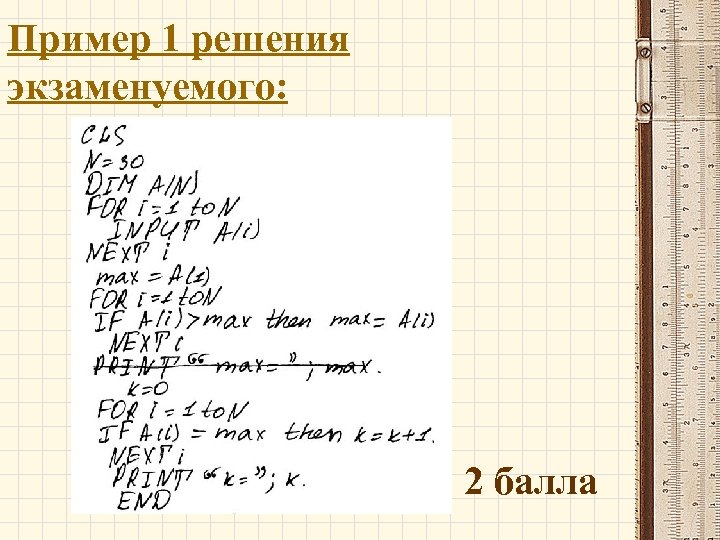 Пример 1 решения
экзаменуемого:
CLS
N=30
DIM A(N)
FOR i=1 to N
INPUT A(i)
NEXT i
max = A(1)
FOR i=1 to N
IF A(i)>max then max= A(i)
NEXT i
PRINT “max=”; max.
k=0
FOR i=1 to N
IF A(i) = max then k=k+1.
NEXT i
PRINT “k=”; k.
END
2 балла